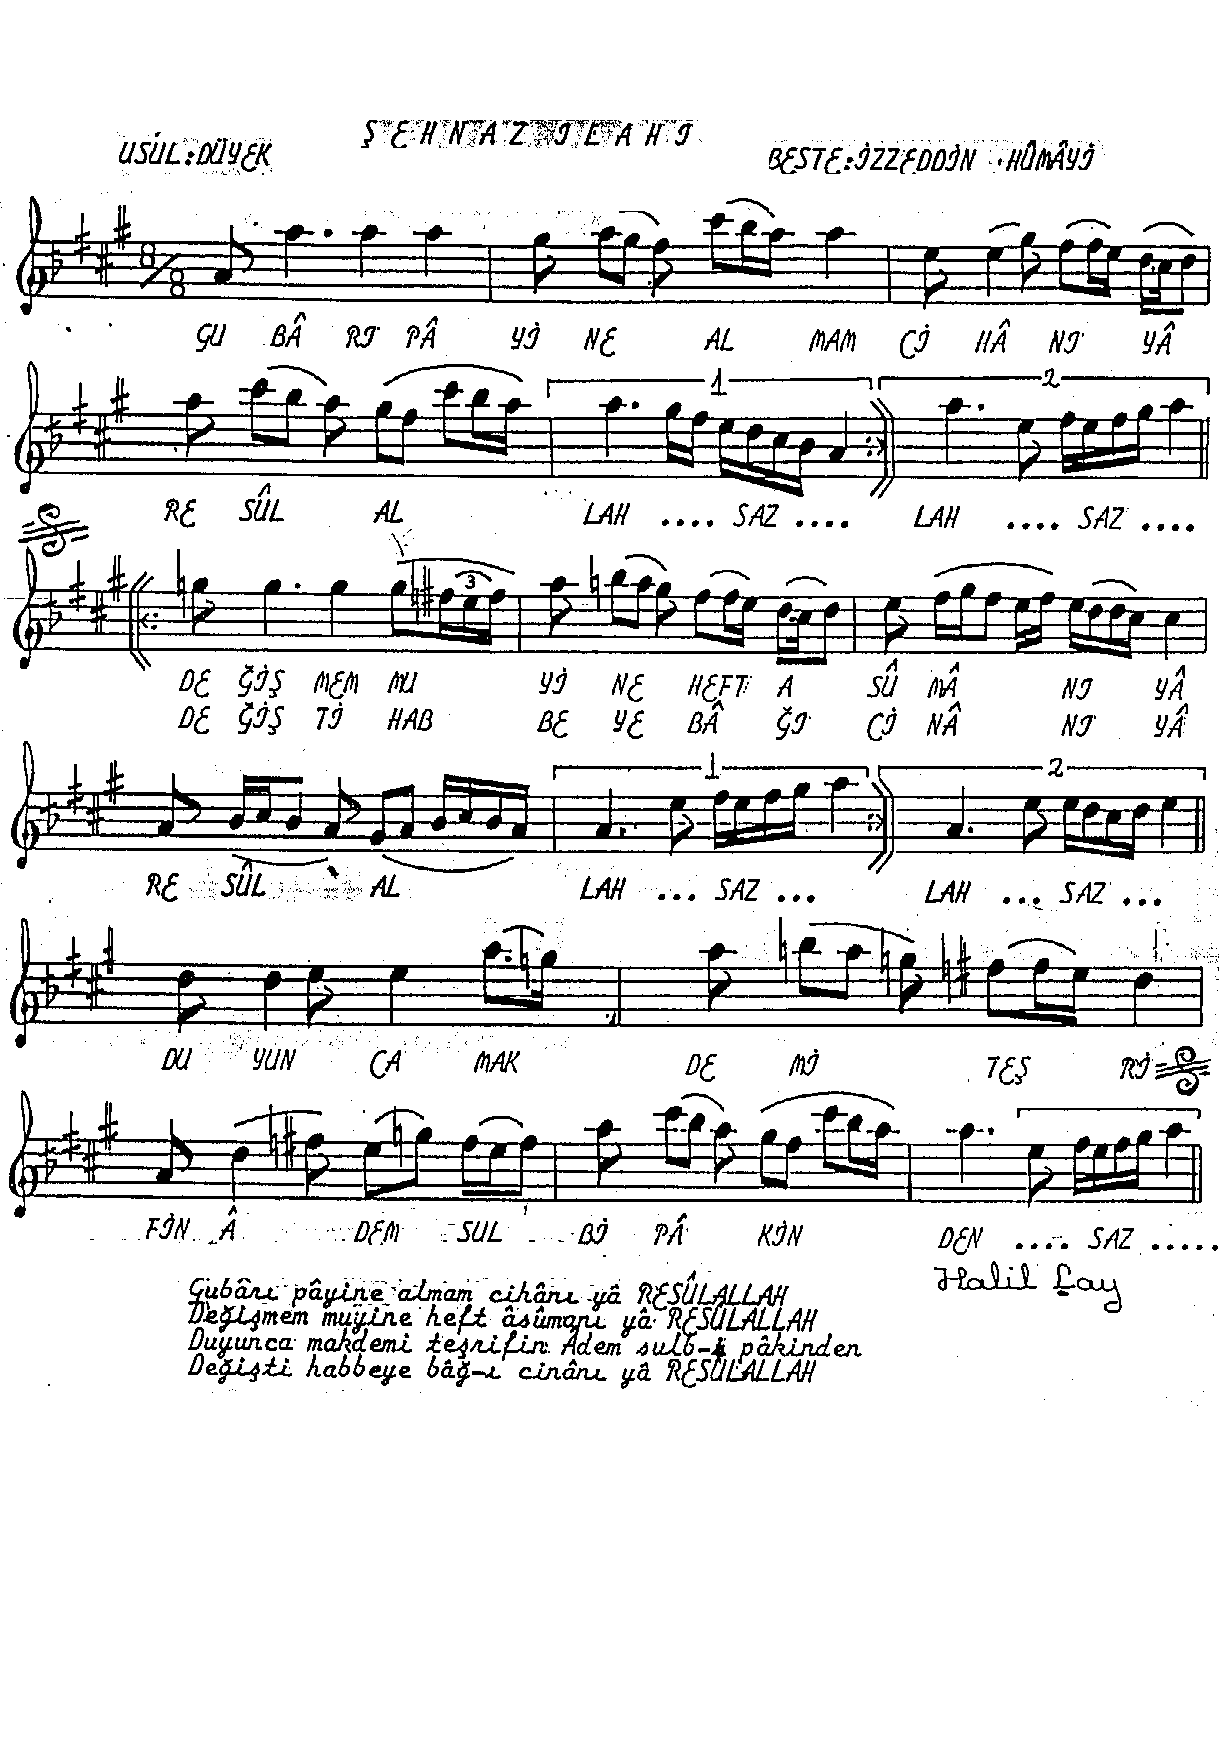 ŞEHNAZ İLAHİ
USÛL:DÜYEK
BESTE:İZZEDDİN HÛMÂYİ
8/8
GU BÂ RI PÂ Yİ NE AL MAM Cİ HÂ NI YÂ
1 2
RE SÛL AL LAH .... SAZ .... LAH .... SAZ ....
3
DE ĞİŞ MEM MU Yİ NE HEFT A SÛ MÂ NI YÂ
DE ĞİŞ Tİ HAB BE YE BÂ ĞI Cİ NÂ NI YÂ
1 2
RE SÛL AL LAH ... SAZ ... LAH ... SAZ ...
DU YUN CA MAK DE Mİ TEŞ Rİ
FİN Â DEM SUL Bİ PÂ KİN DEN .... SAZ .....
Halil Çay
Gubârı pâyine almam cihânı yâ RESÛLALLAH
Değişmem muyine heft âsûmanı yâ RESÛLALLAH
Duyunca makdemi teşrifin Adem sulb-i pâkinden
Değişti habbeye bâğ-ı cinânı yâ RESÛLALLAH